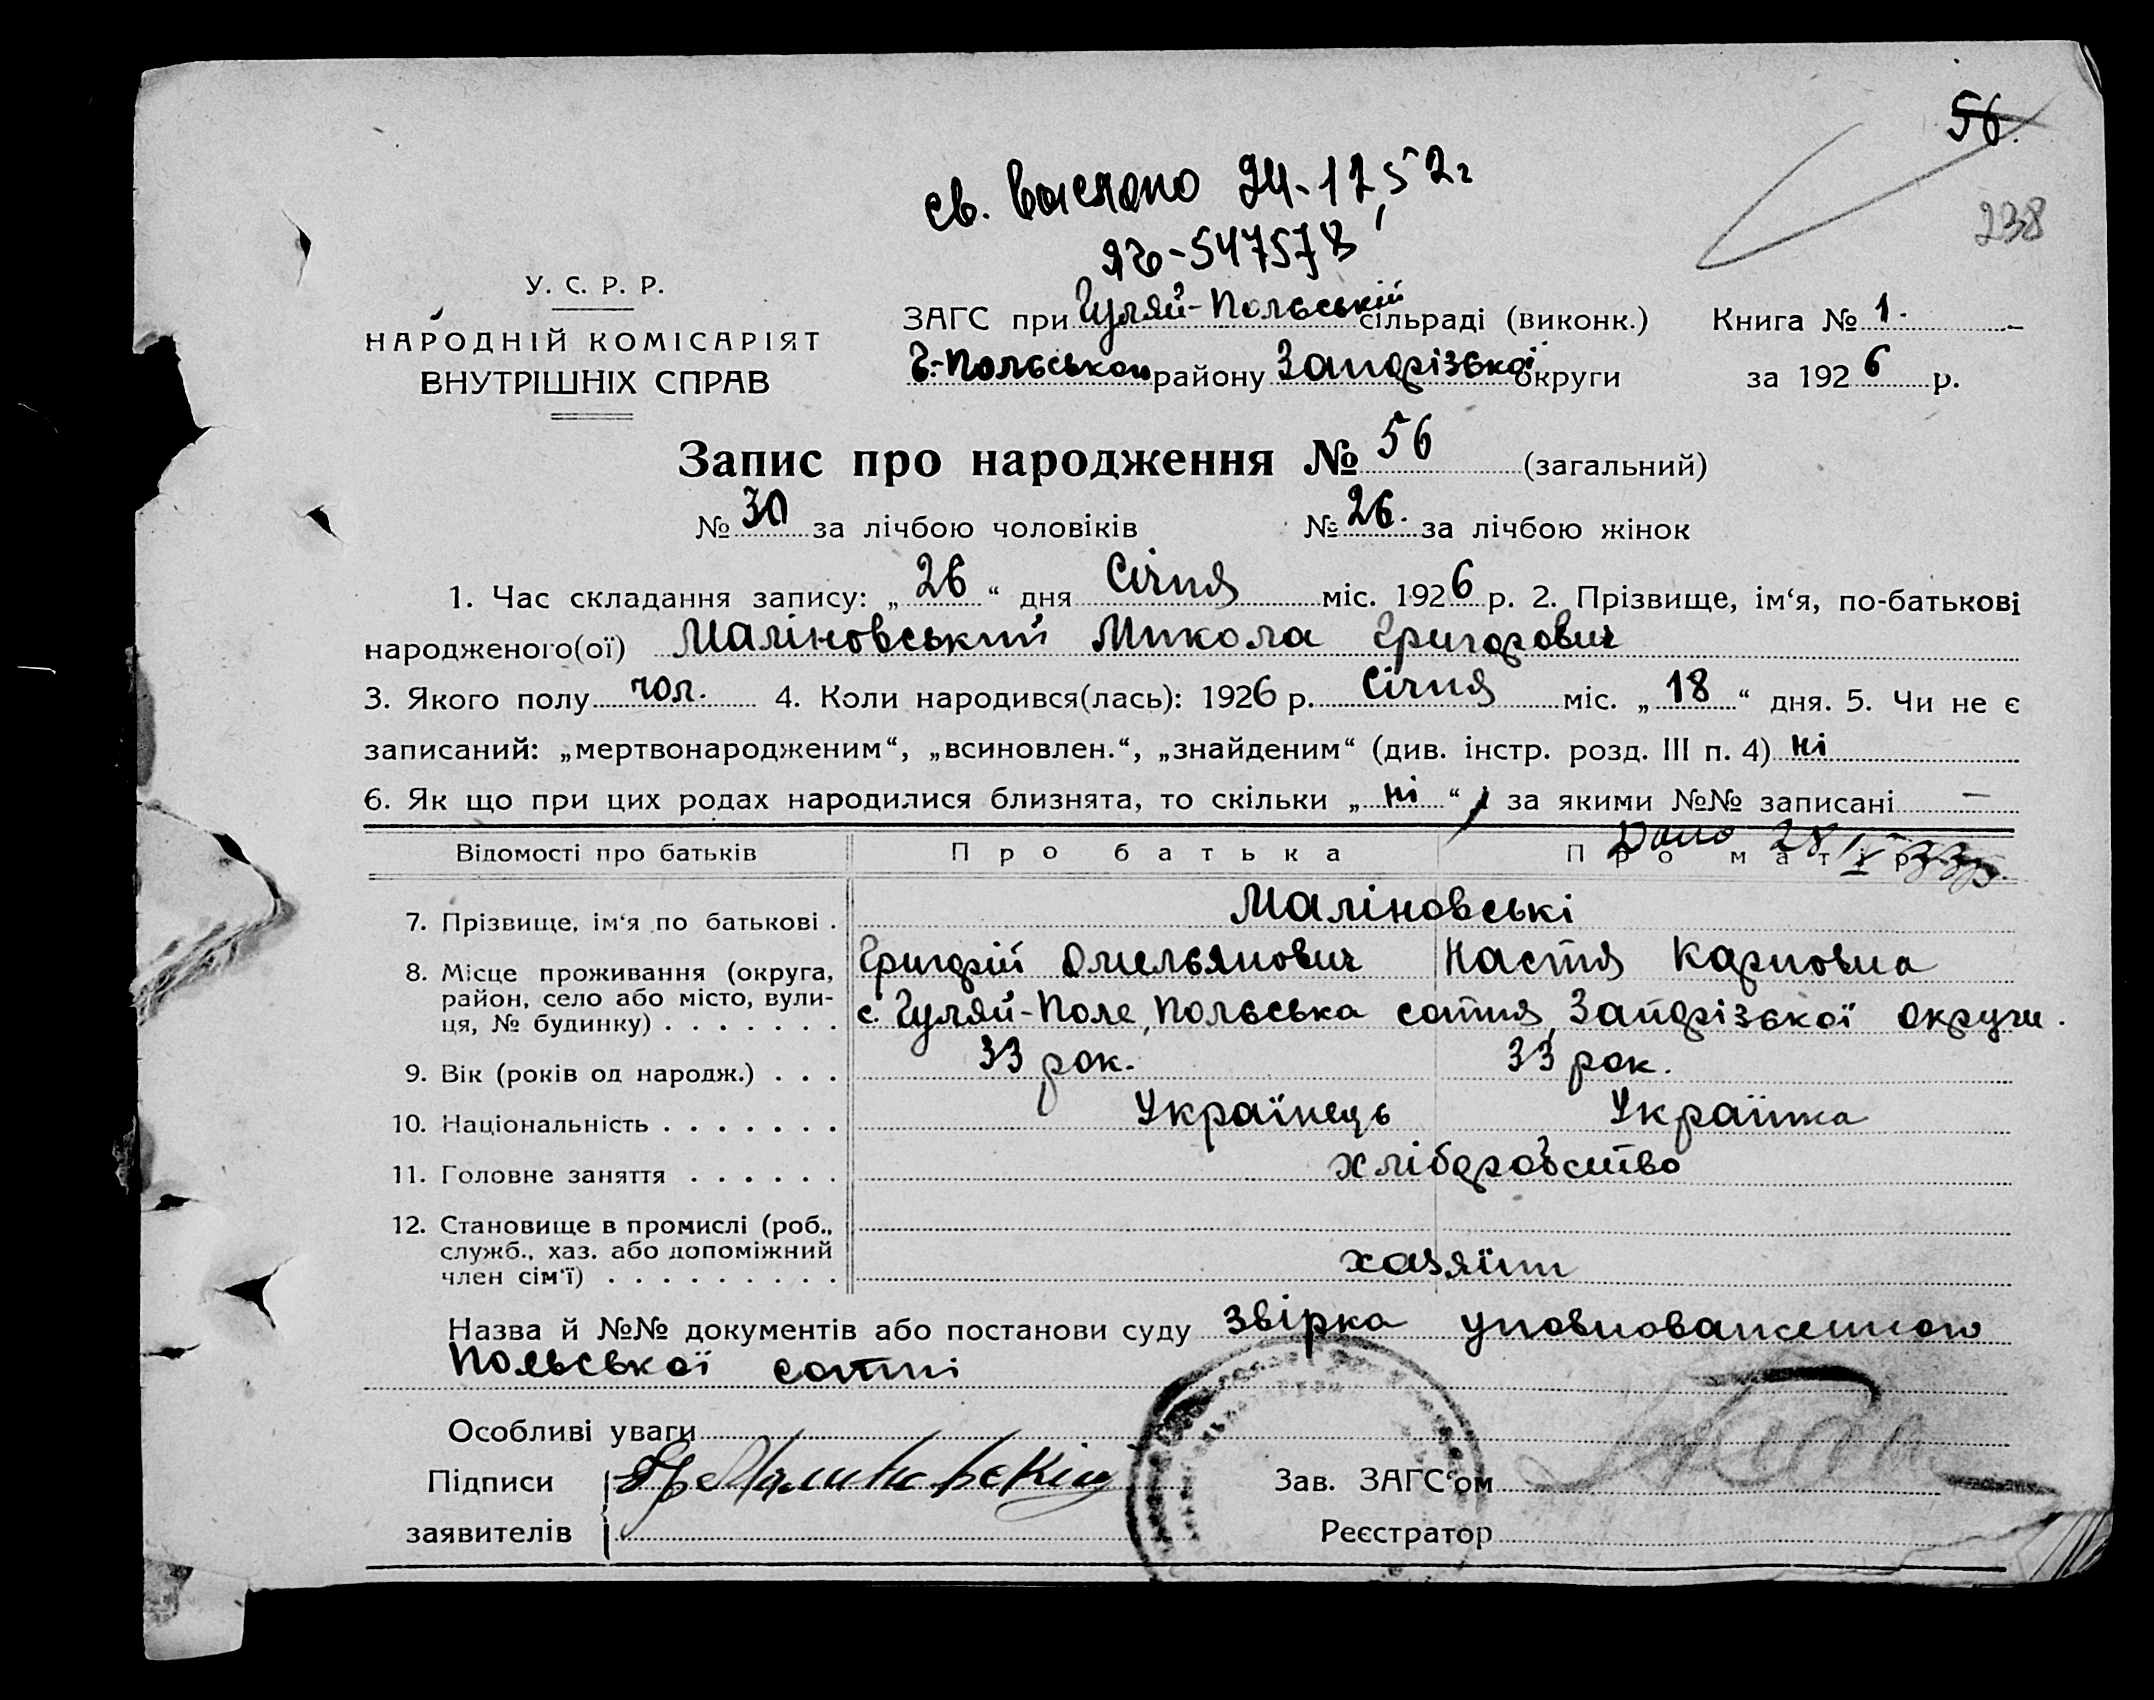 56.
св. выслано 24-12,52г
238
ЯЮ-547578
У. С. Р. Р.
НАРОДНІЙ КОМІСАРІЯТ
ВНУТРІШНІХ СПРАВ
ЗАГС при Гуляй-Польській сільраді (виконк.) Книга № 1.
Г.-Польського району Запорізької округи за 1926 р.
Запис про народження № 56 (загальний)
№ 30 за лічбою чоловіків № 26. за лічбою жінок
1. Час складання запису: „26“ дня Січня міс. 1926 р. 2. Прізвище, ім‘я, по-батькові
народженого(ої) Маліновський Микола Григорович
3. Якого полу чол. 4. Коли народився(лась): 1926 р. Січня міс. „18“ дня. 5. Чи не є
записаний: „мертвонародженим“, „всиновлен.“, „знайденим“ (див. інстр. розд. III п. 4) ні
6. Як що при цих родах народилися близнята, то скільки „ні“, і за якими №№ записані —
Дано 28/V 33р.
Відомості про батьків Про батька Про матір
Маліновські
7. Прізвище, ім‘я по батькові . Григорій Омельянович Настя Карповна
8. Місце проживання (округа,
район, село або місто, вули-
ця, № будинку) . . . . . . . с. Гуляй-Поле, Польська сотня, Запорізької округи.
9. Вік (років од народж.) . . . 33 рок. 33 рок.
10. Національність . . . . . . . Українець Українка
11. Головне заняття . . . . . . хліборобство
12. Становище в промислі (роб.,
служб., хаз. або допоміжний
член сім‘ї) . . . . . . . . . хазяїни
Назва й №№ документів або постанови суду звірка уповноваженного
Польської сотні
Особливі уваги
Підписи Гр Малиновскій Зав. ЗАГС‘ом
заявителів Реєстратор